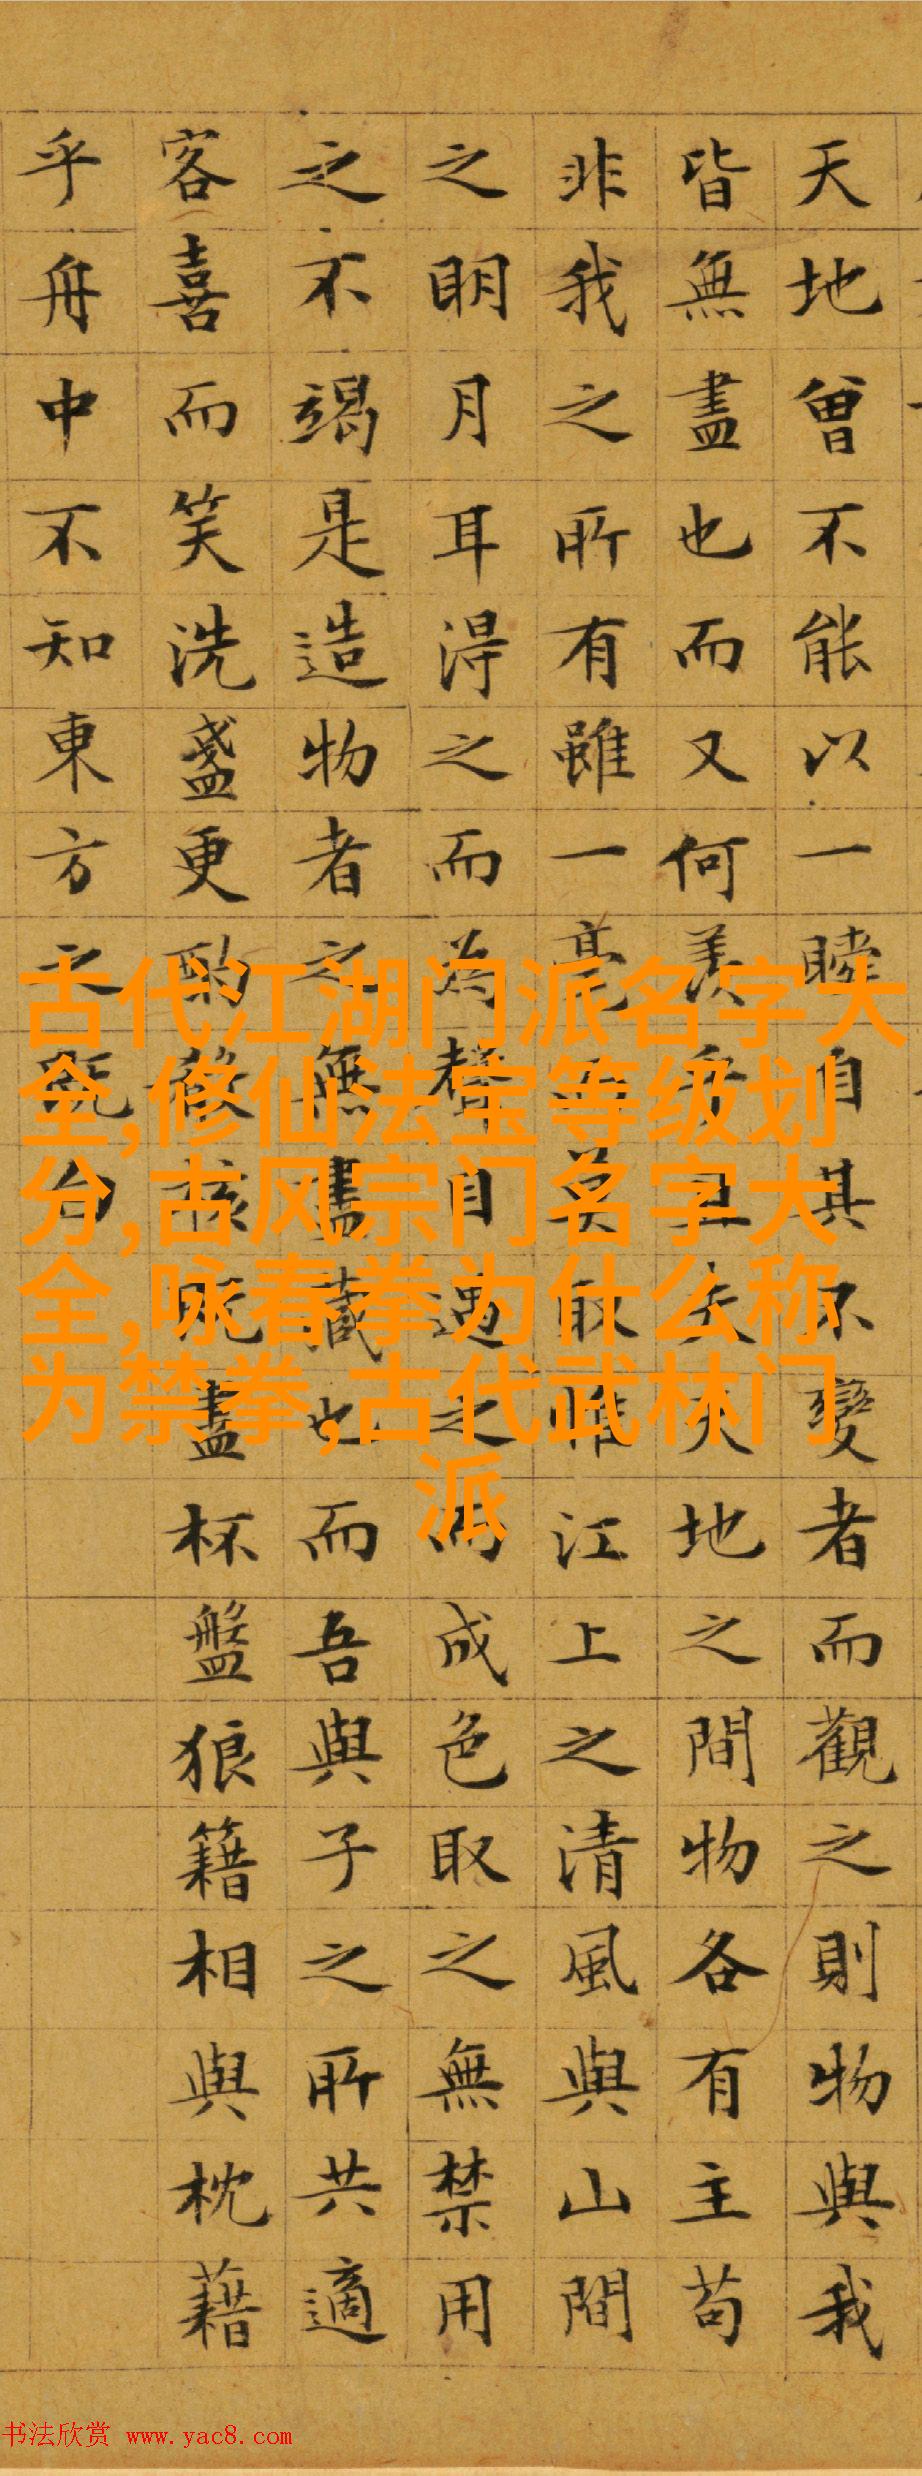 天地曾不能以一瞬自其不變者而觀之則物與我
皆無盡也而又何羨乎且夫天地之間物各有主苟
非我之所有雖一毫而莫取惟江上之清風與山間
之明月耳得之而為聲目遇之而成色取之無禁用
之不竭是造物者之無盡藏也而吾與子之所共適
客喜而笑洗盞更酌核既盡杯盤狼籍相與枕藉
乎舟中不知東方之既白
古代江湖门派名字大
全,修仙法宝等级划
分,古风宗门名字大
全,咏春拳为什么称
为禁拳,古代武林门
派
书法欣赏 www.yac8.com